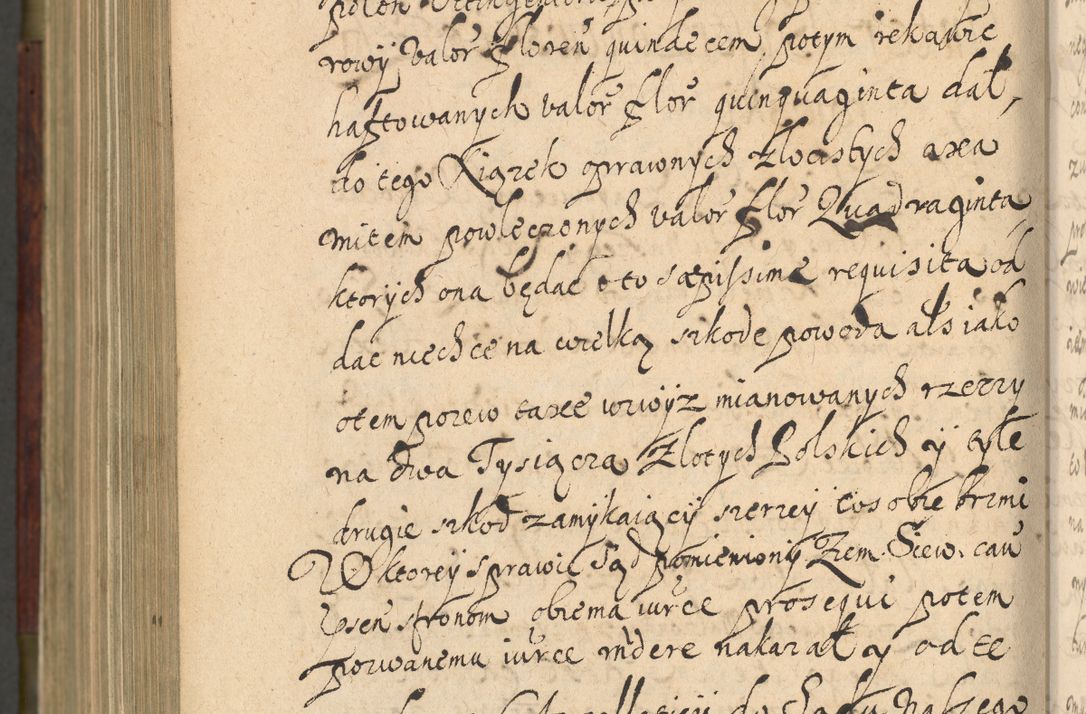 rowy valor floren quindecem potym rekawic
haftowanych valor flor quinquaginta dał,
do tego Xiązek oprawnych złocistych axa
mitem powleczonych valor flor Quadraginta
ktorych ona będąc o to sæpissime requisita od
dac niechce na wielką szkodę powoda als iako
otem pozew taxę wzwyz mianowanych rzerzy
na dwa Tysiącza Złotych Polskich y tyle
drugie szkod zamykaiący szerzey w sobie brzmi
W ktorey sprawie Sąd pomieniony Ziem. Siew. cau
psen stronom obiema iurce prosequi potem
pozwanemu iurce rndere nakazał y od te